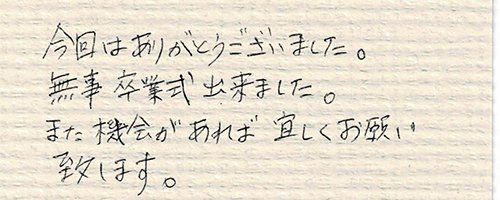 今回はありがとうございました。
無事卒業式出来ました。
また機会があれば宜しくお願い
致します。